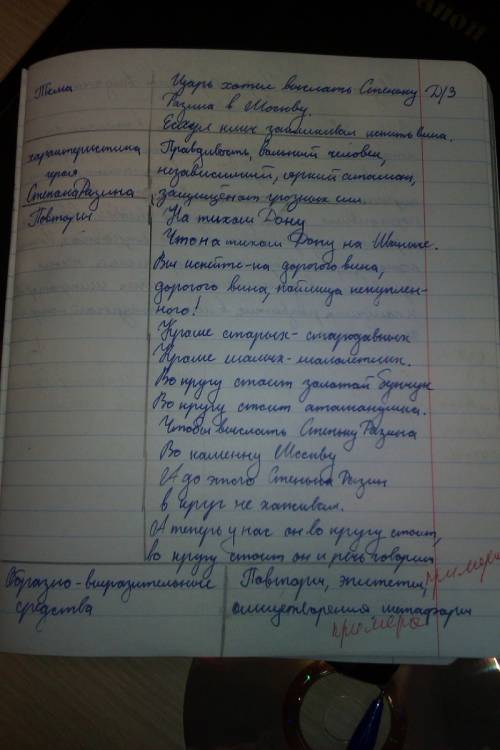 Тема
Царь хотел выслать Степану Д/З
Разина в Москву.
Есаул них испить вина.
характеристика
героя
Степана Разина
Правдивость, вольный человек,
независимый, яркий
грозных сил.
Повторы
На тихом Дону
Что на тихом Дону на Иваныче.
Вы испейте-ка дорогого вина,
дорогого вина, пойлица некуплен-
ного!
Кроме старых-стародавних
Кроме малых-малолетних.
Во кругу стоит золотой бунчук
Во кругу стоит атаманушка.
Чтобы выслать Степьку Разина
Во каменну Москву
А до этого Степька Разин
в круг не хаживал.
А теперь у нас он во кругу стоит,
во кругу стоит он и речь говорит
Образно-выразительные
средства
Повторы, эпитеты, примеры
олицетворения метафоры
примеры